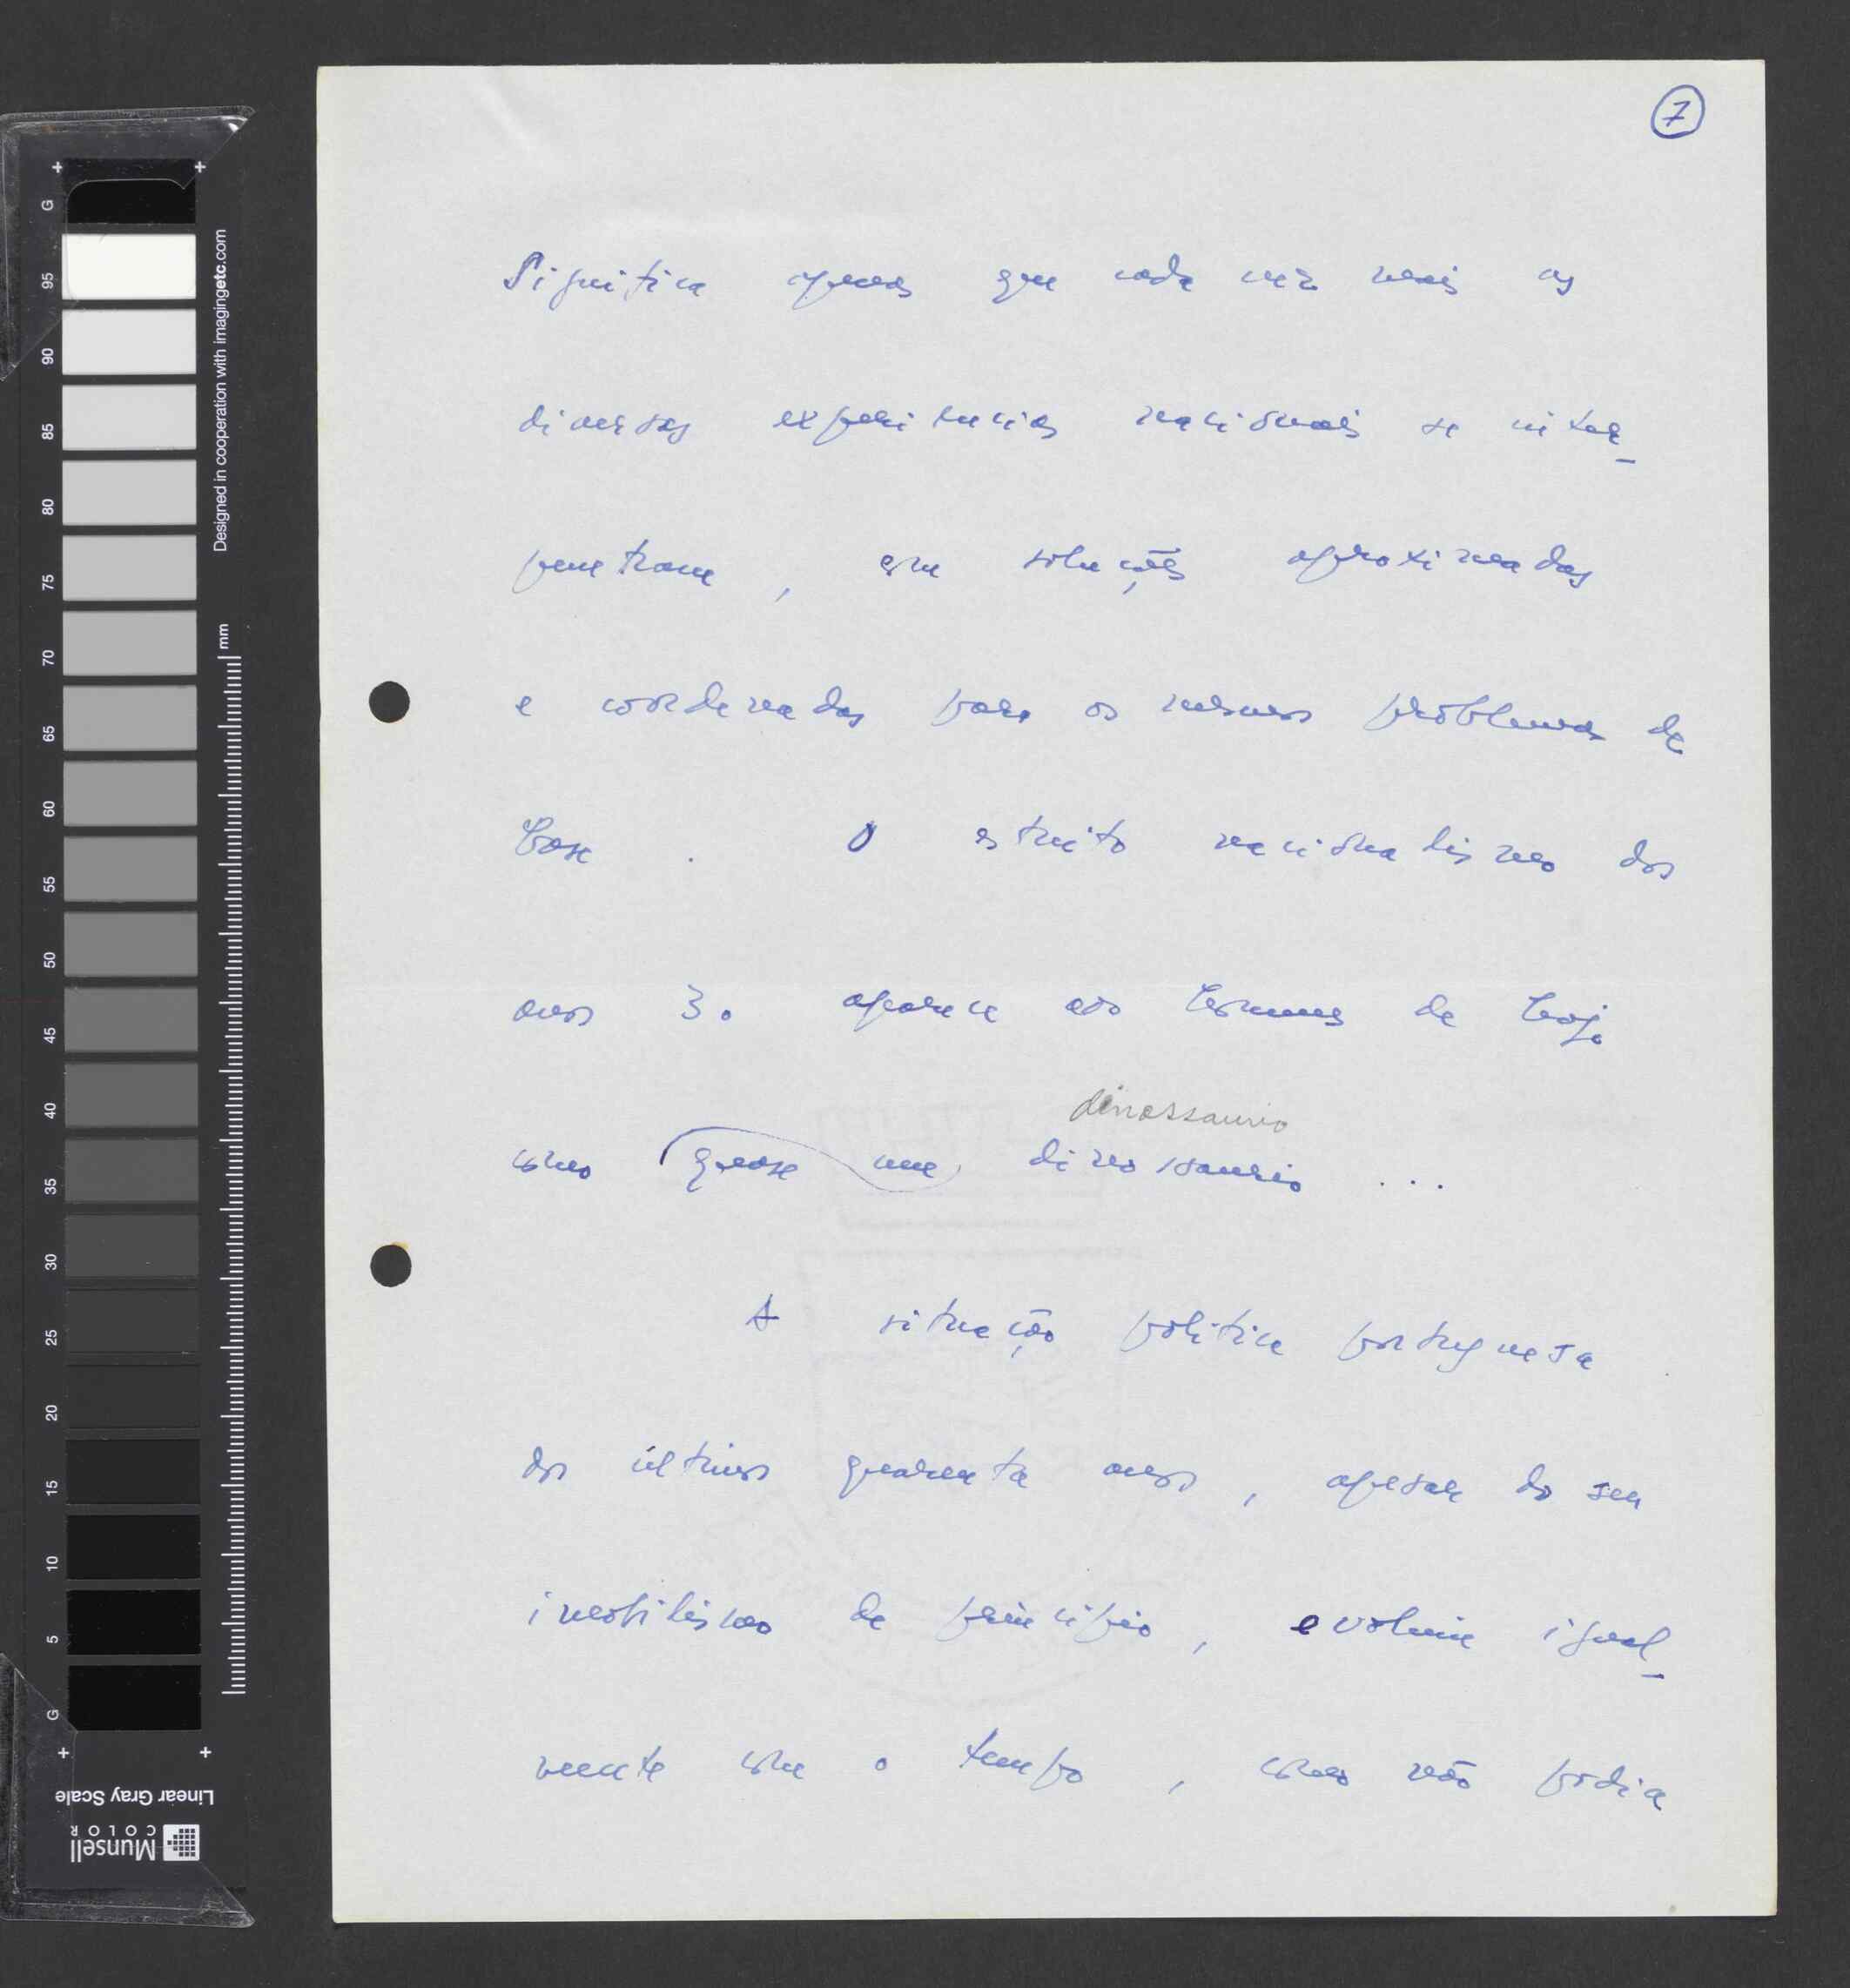 7
Significa apenas que cada vez mais as
diversas experiências nacionais se inter-
penetram, em soluções aproximadas
e coordenadas para os mesmos problemas de
base. O estreito nacionalismo dos
anos 30 aparece aos homens de hoje
dinossaurio
como quase um dinossaurio ...
A situação politica portuguesa
dos últimos quarenta anos, apesar do seu
imobilismo de princípio, evoluiu igual-
mente com o tempo, como não podia
G
95
90
85
80
75
70
65
60
55
50
45
40
35
30
25
20
15
10
5
G
Designed in cooperation with imagingetc.com
mm
Linear Gray Scale
Munsell
COLOR